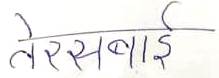 तेरसबाई